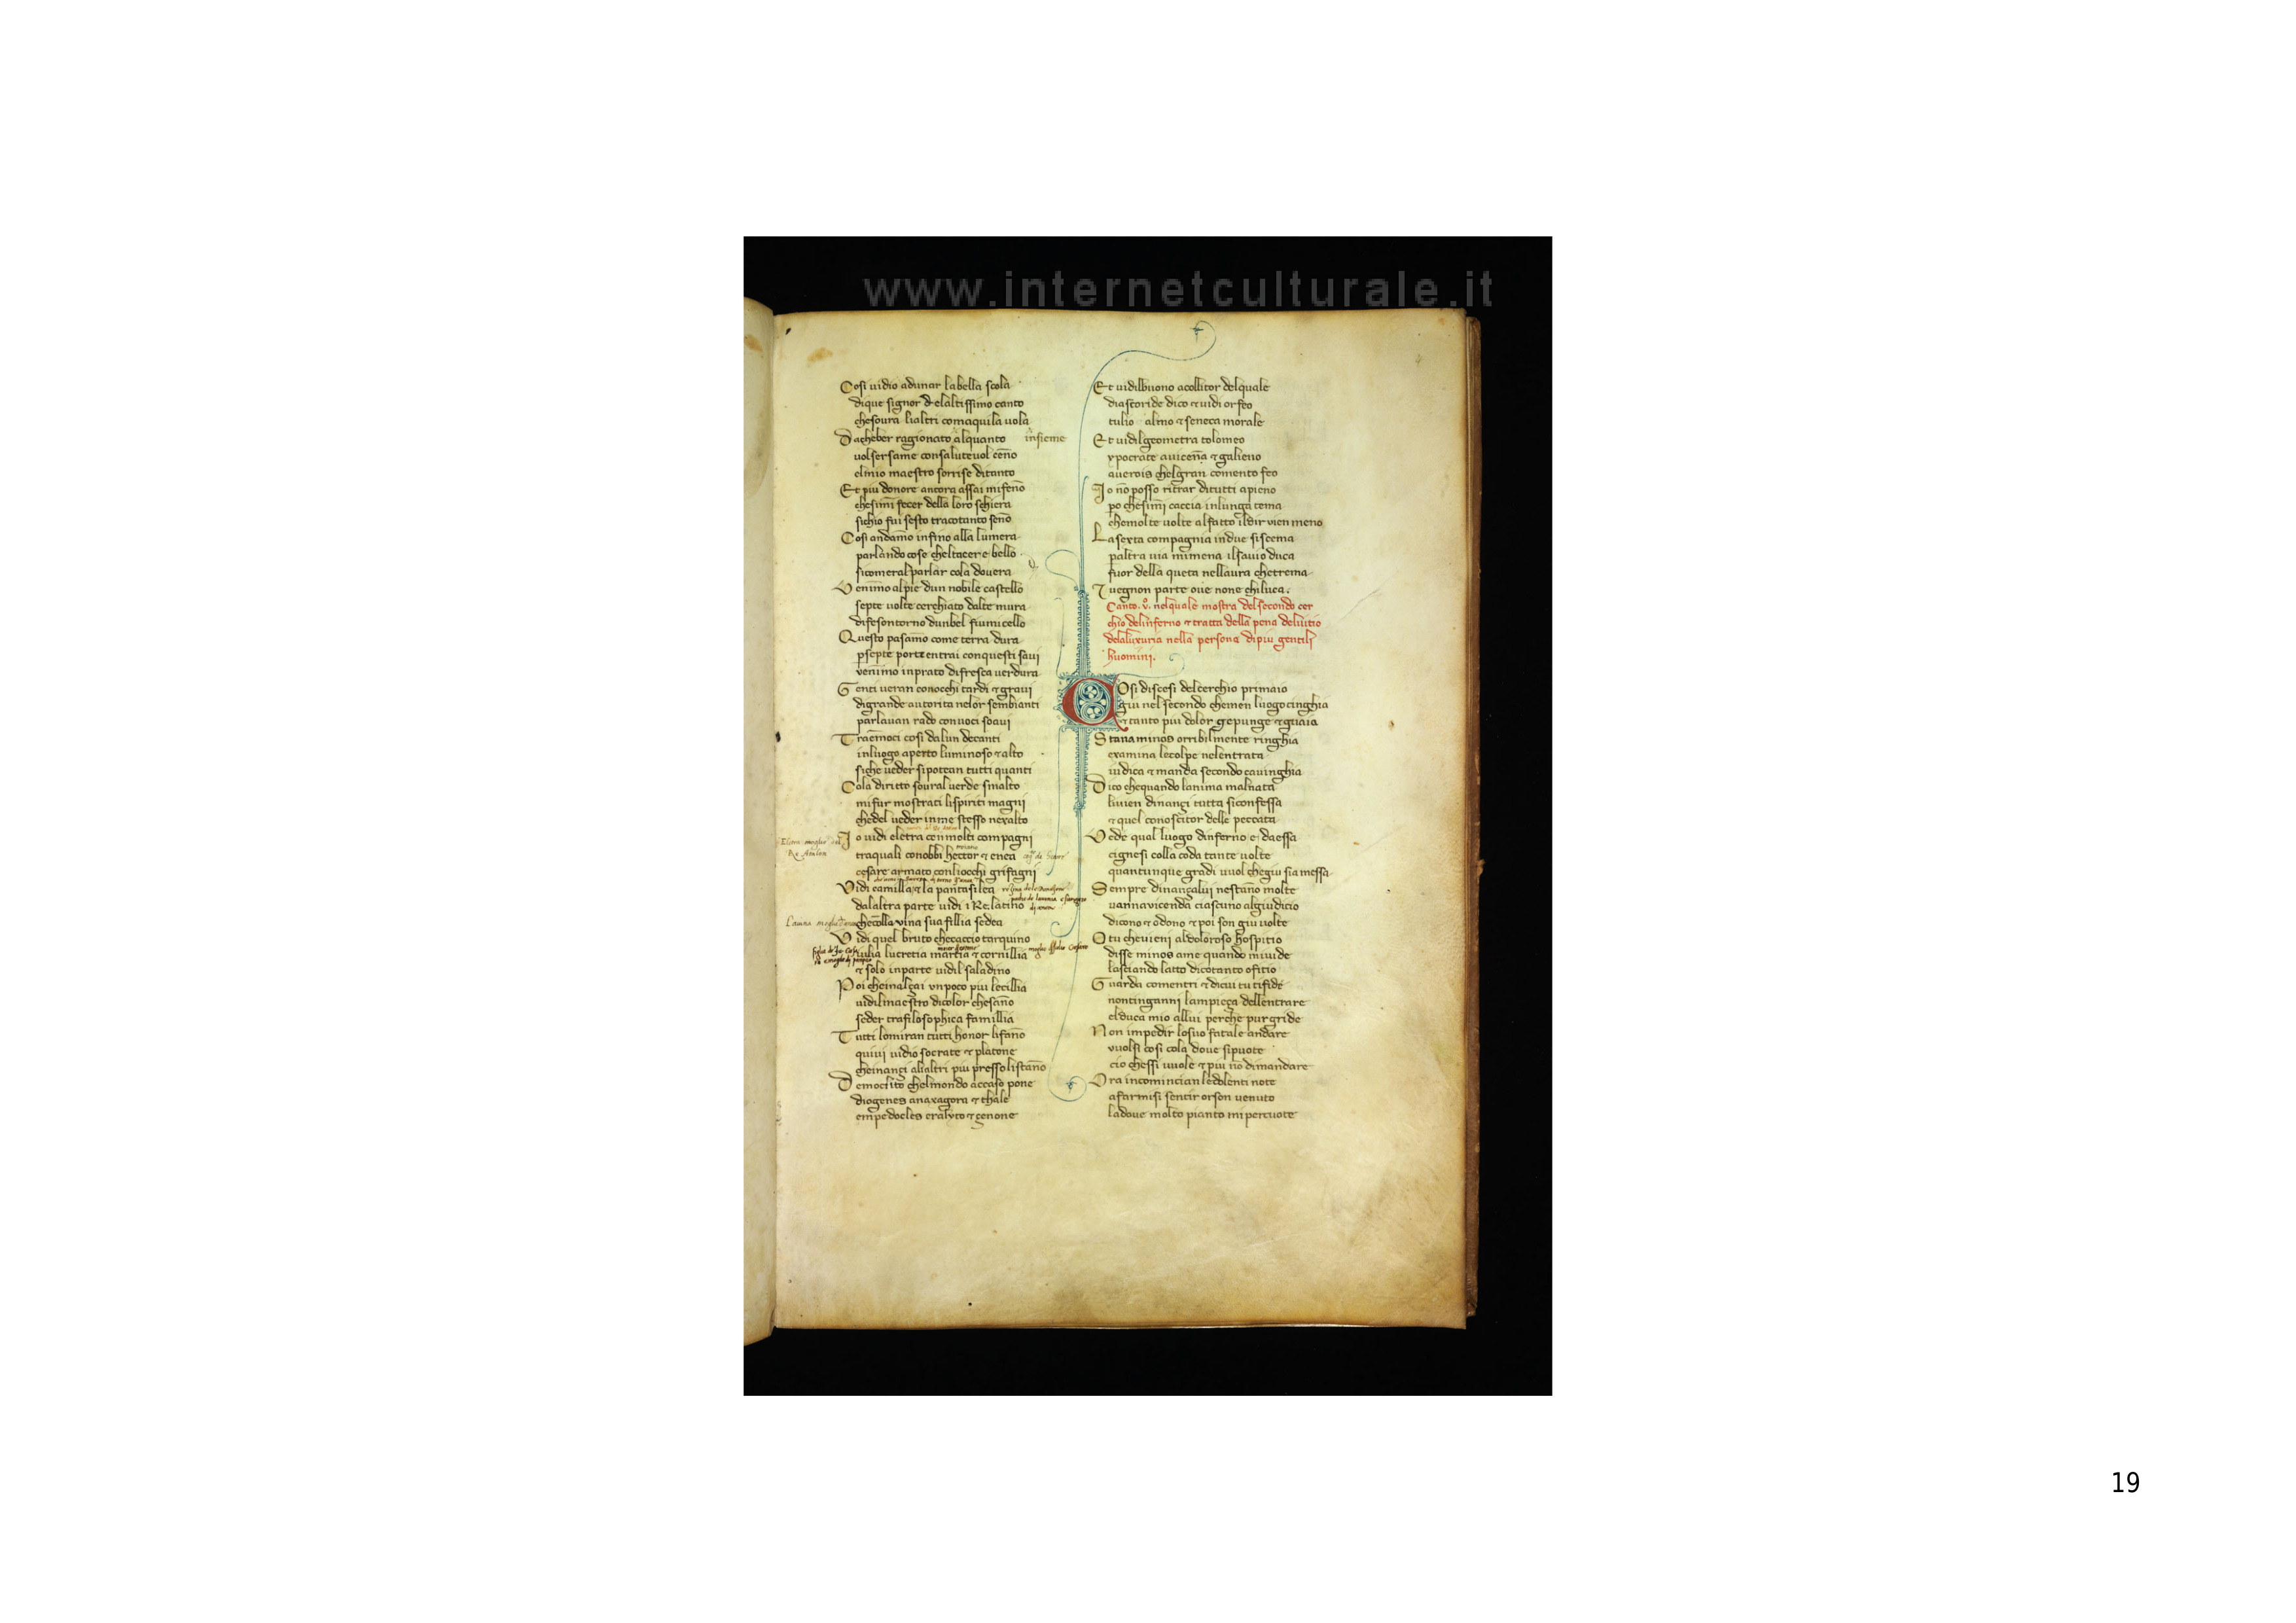 www.internetculturale.it
Cosi uidio adunar labella scola
dique signor delaltissimo canto
chesoura lialtri comaquila uola
Dacheber ragionato alquanto insieme
uolsersame consaluteuol ceño
elmio maestro sorrise ditanto
Et piu donore ancora assai mifeno
chesimi fecer della loro schiera
sichio fui sesto tracotanto seño
Cosi andamo infino alla lumera
parlando cose cheltacere bello
sicomeralparlar cola douera
Uenimo alpie dun nobile castello
septe uolte cerchiato dalte mura
difesontorno dunbel fiumicello
Questo pasamo come terra dura
psepte porte entrai conquesti saui
venimo inprato difresca uerdura
Genti ueran conocchi tardi & graui
digrande autorita nelor sembianti
parlauan rado conuoci soaui
Traemoci cosi dalun decanti
inluogo aperto luminoso & alto
siche ueder sipotean tutti quanti
Cola diritto soural uerde smalto
mifur mostrati lispiriti magni
chedel ueder inme stesso nexalto
Io uidi eletra con molti compagni
traquali conobbi hector & enea
cesare armato conliocchi grifagni
Vidi camilla & la pantasilea
dalaltra parte uidi i Re latino
checolla vina sua fillia sedea
Vidi quel bruto checaccio tarquino
iulia lucretia martia & cornillia
& solo inparte uidil saladino
Poi cheinalçai vnpoco piu lecillia
uidilmaestro dicolor chesaño
seder trafilosophica famillia
Tutti lomiran tutti honor lifaño
quiui uidio socrate & platone
cheinançi alialtri piu presso listaño
Democlito chelmondo accaso pone
diogenes anaxagora & thale
empedocles eralyto & çenone
Et uidilbuono acollitor delquale
diascoride dico & uidi orfeo
tulio almo & seneca morale
Et uidilgeometra tolomeo
ypocrate auiceña & galieno
auerois chelgran comento feo
Io nō posso ritrar ditutti apieno
po chesimi caccia inlunga tema
chemolte uolte alfatto ildir vien meno
La sexta compagnia indue siscema
paltra uia mimena ilsauio duca
fuor della queta nellaura chetrema
& uegnon parte oue none chiluca.
Canto .v. nelquale mostra delsecondo cer
chio delinferno & tratta della pena deluitio
delaluxuria nella persona dipiu gentili
huomini.
Cosi discesi delcerchio primaio
giu nel secondo chemen luogo cinghia
& tanto piu dolor chepunge & guaia
Stanaminos orribilmente ringhia
examina lecolpe nelentrata
iudica & manda secondo cauinghia
Dico chequando lanima malnata
liuien dinançi tutta siconfessa
& quel conoscitor delle peccata
Uede qual luogo dinferno e daessa
cignesi colla coda tante uolte
quantunque gradi uuol chegiu sia messa
Sempre dinançalui nestaño molte
uannauicenda ciascuno algiudicio
dicono & odono & poi son giu uolte
O tu cheuieni aldoloroso hospitio
disse minos ame quando miuide
lasciando latto dicotanto ofitio
Guarda comentri & dicui tu tifide
nontinganni lampieça dellentrare
elduca mio allui perche pur gride
Non impedir losuo fatale andare
vuolsi cosi cola doue sipuote
cio chessi uuole & piu nō dimandare
Ora incomincian ledolenti note
afarmisi sentir orson uenuto
ladoue molto pianto mi percuote
19